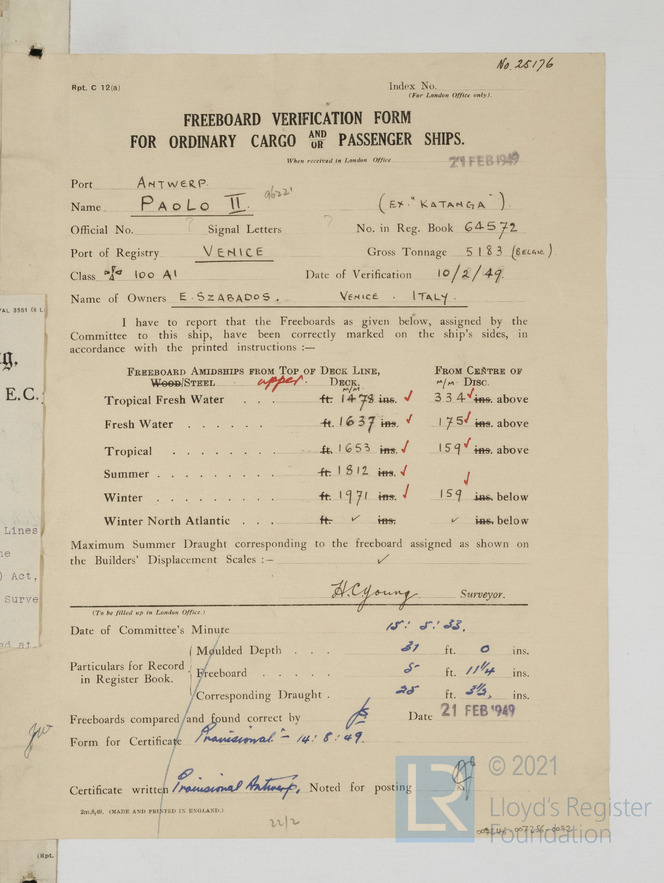 No. 25176
Rpt. C 12(a)
Index No.
(For London Office only).
FREEBOARD VERIFICATION FORM
FOR ORDINARY CARGO AND OR PASSENGER SHIPS.
When received in London Office 21 FEB 1949
Port ANTWERP.
Name PAOLO II. 96221 (EX. "KATANGA").
Official No. ? Signal Letters ? No. in Reg. Book 64572
Port of Registry VENICE Gross Tonnage 5183 (BELGIC)
Class 100 A1 Date of Verification 10/2/49.
Name of Owners E. SZABADOS. VENICE. ITALY.
I have to report that the Freeboards as given below, assigned by the
Committee to this ship, have been correctly marked on the ship's sides, in
accordance with the printed instructions :—
FREEBOARD AMIDSHIPS FROM TOP OF DECK LINE, FROM CENTRE OF
WOOD/STEEL upper. DECK. M/M DISC.
M/M
Tropical Fresh Water . . . ft. 1478 ins. ✓ 334 ✓ ins. above
Fresh Water . . . . . . ft. 1637 ins. ✓ 175 ✓ ins. above
Tropical . . . . . . . . ft. 1653 ins. ✓ 159 ✓ ins. above
Summer . . . . . . . . . ft. 1812 ins. ✓
Winter . . . . . . . . . ft. 1971 ins. ✓ 159 ✓ ins. below
Winter North Atlantic . . . ft. ✓ ins. ✓ ins. below
Maximum Summer Draught corresponding to the freeboard assigned as shown on
the Builders' Displacement Scales :— ✓
H.C. Young Surveyor.
(To be filled up in London Office.)
Date of Committee's Minute 15 : 5 : 33.
Particulars for Record in Register Book.
Moulded Depth . . . 31 ft. 0 ins.
Freeboard . . . . . 5 ft. 11¼ ins.
Corresponding Draught . 25 ft. 3½, ins.
Freeboards compared and found correct by Date 21 FEB 1949
Form for Certificate "Provisional" – 14 : 8 : 49.
Certificate written Provisional Antwerp. Noted for posting
(MADE AND PRINTED IN ENGLAND.)
22/2
© 2021
LR
Lloyd's Register
Foundation
E.C.
Lines
) Act,
Surve
(Rpt.